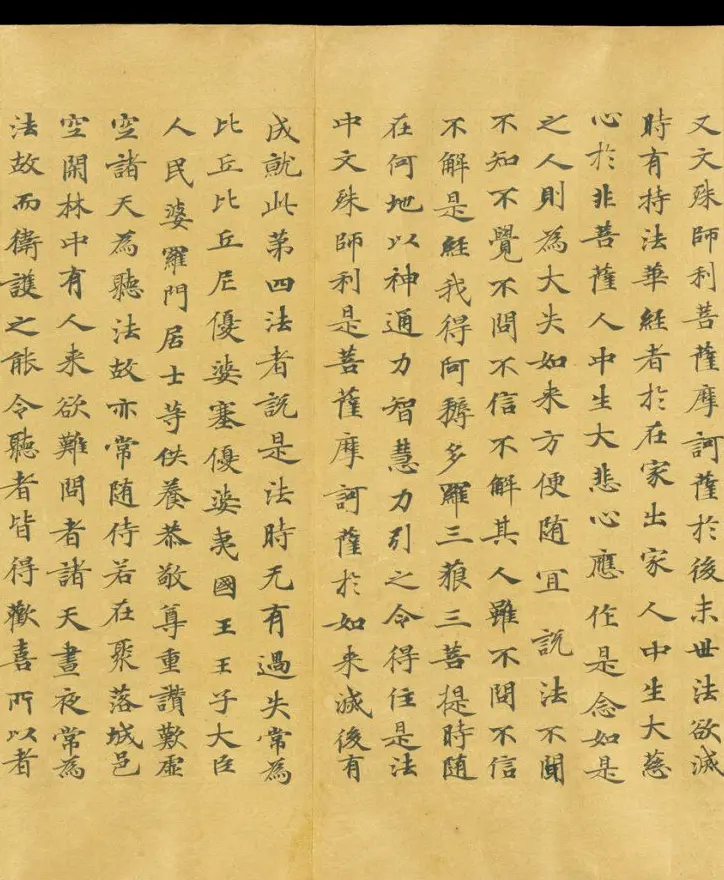 又文殊師利菩薩摩訶薩於後末世法欲滅
時有持法華經者於在家出家人中生大慈
心於非菩薩人中生大悲心應作是念如是
之人則為大失如来方便随冝說法不聞
不知不覺不問不信不解其人雖不問不信
不解是經我得阿耨多羅三藐三菩提時随
在何地以神通力智慧力引之令得住是法
中文殊師利是菩薩摩訶薩於如来滅後有
成就此第四法者說是法時无有過失常為
比丘比丘尼優婆塞優婆夷國王王子大臣
人民婆羅門居士等供養恭敬尊重讃歎虛
空諸天為聽法故亦常随侍若在聚落城邑
空閑林中有人来欲難問者諸天晝夜常為
法故而衛護之能令聽者皆得歡喜所以者